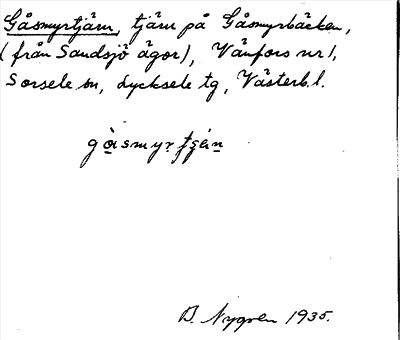 Gåsmyrtjärn, tjärn på Gåsmyrbäcken,
(från Sandsjö ägor), Vänfors nr 1,
Sorsele sn, Lycksele tg, Västerb. l.
B. Nygren 1935.